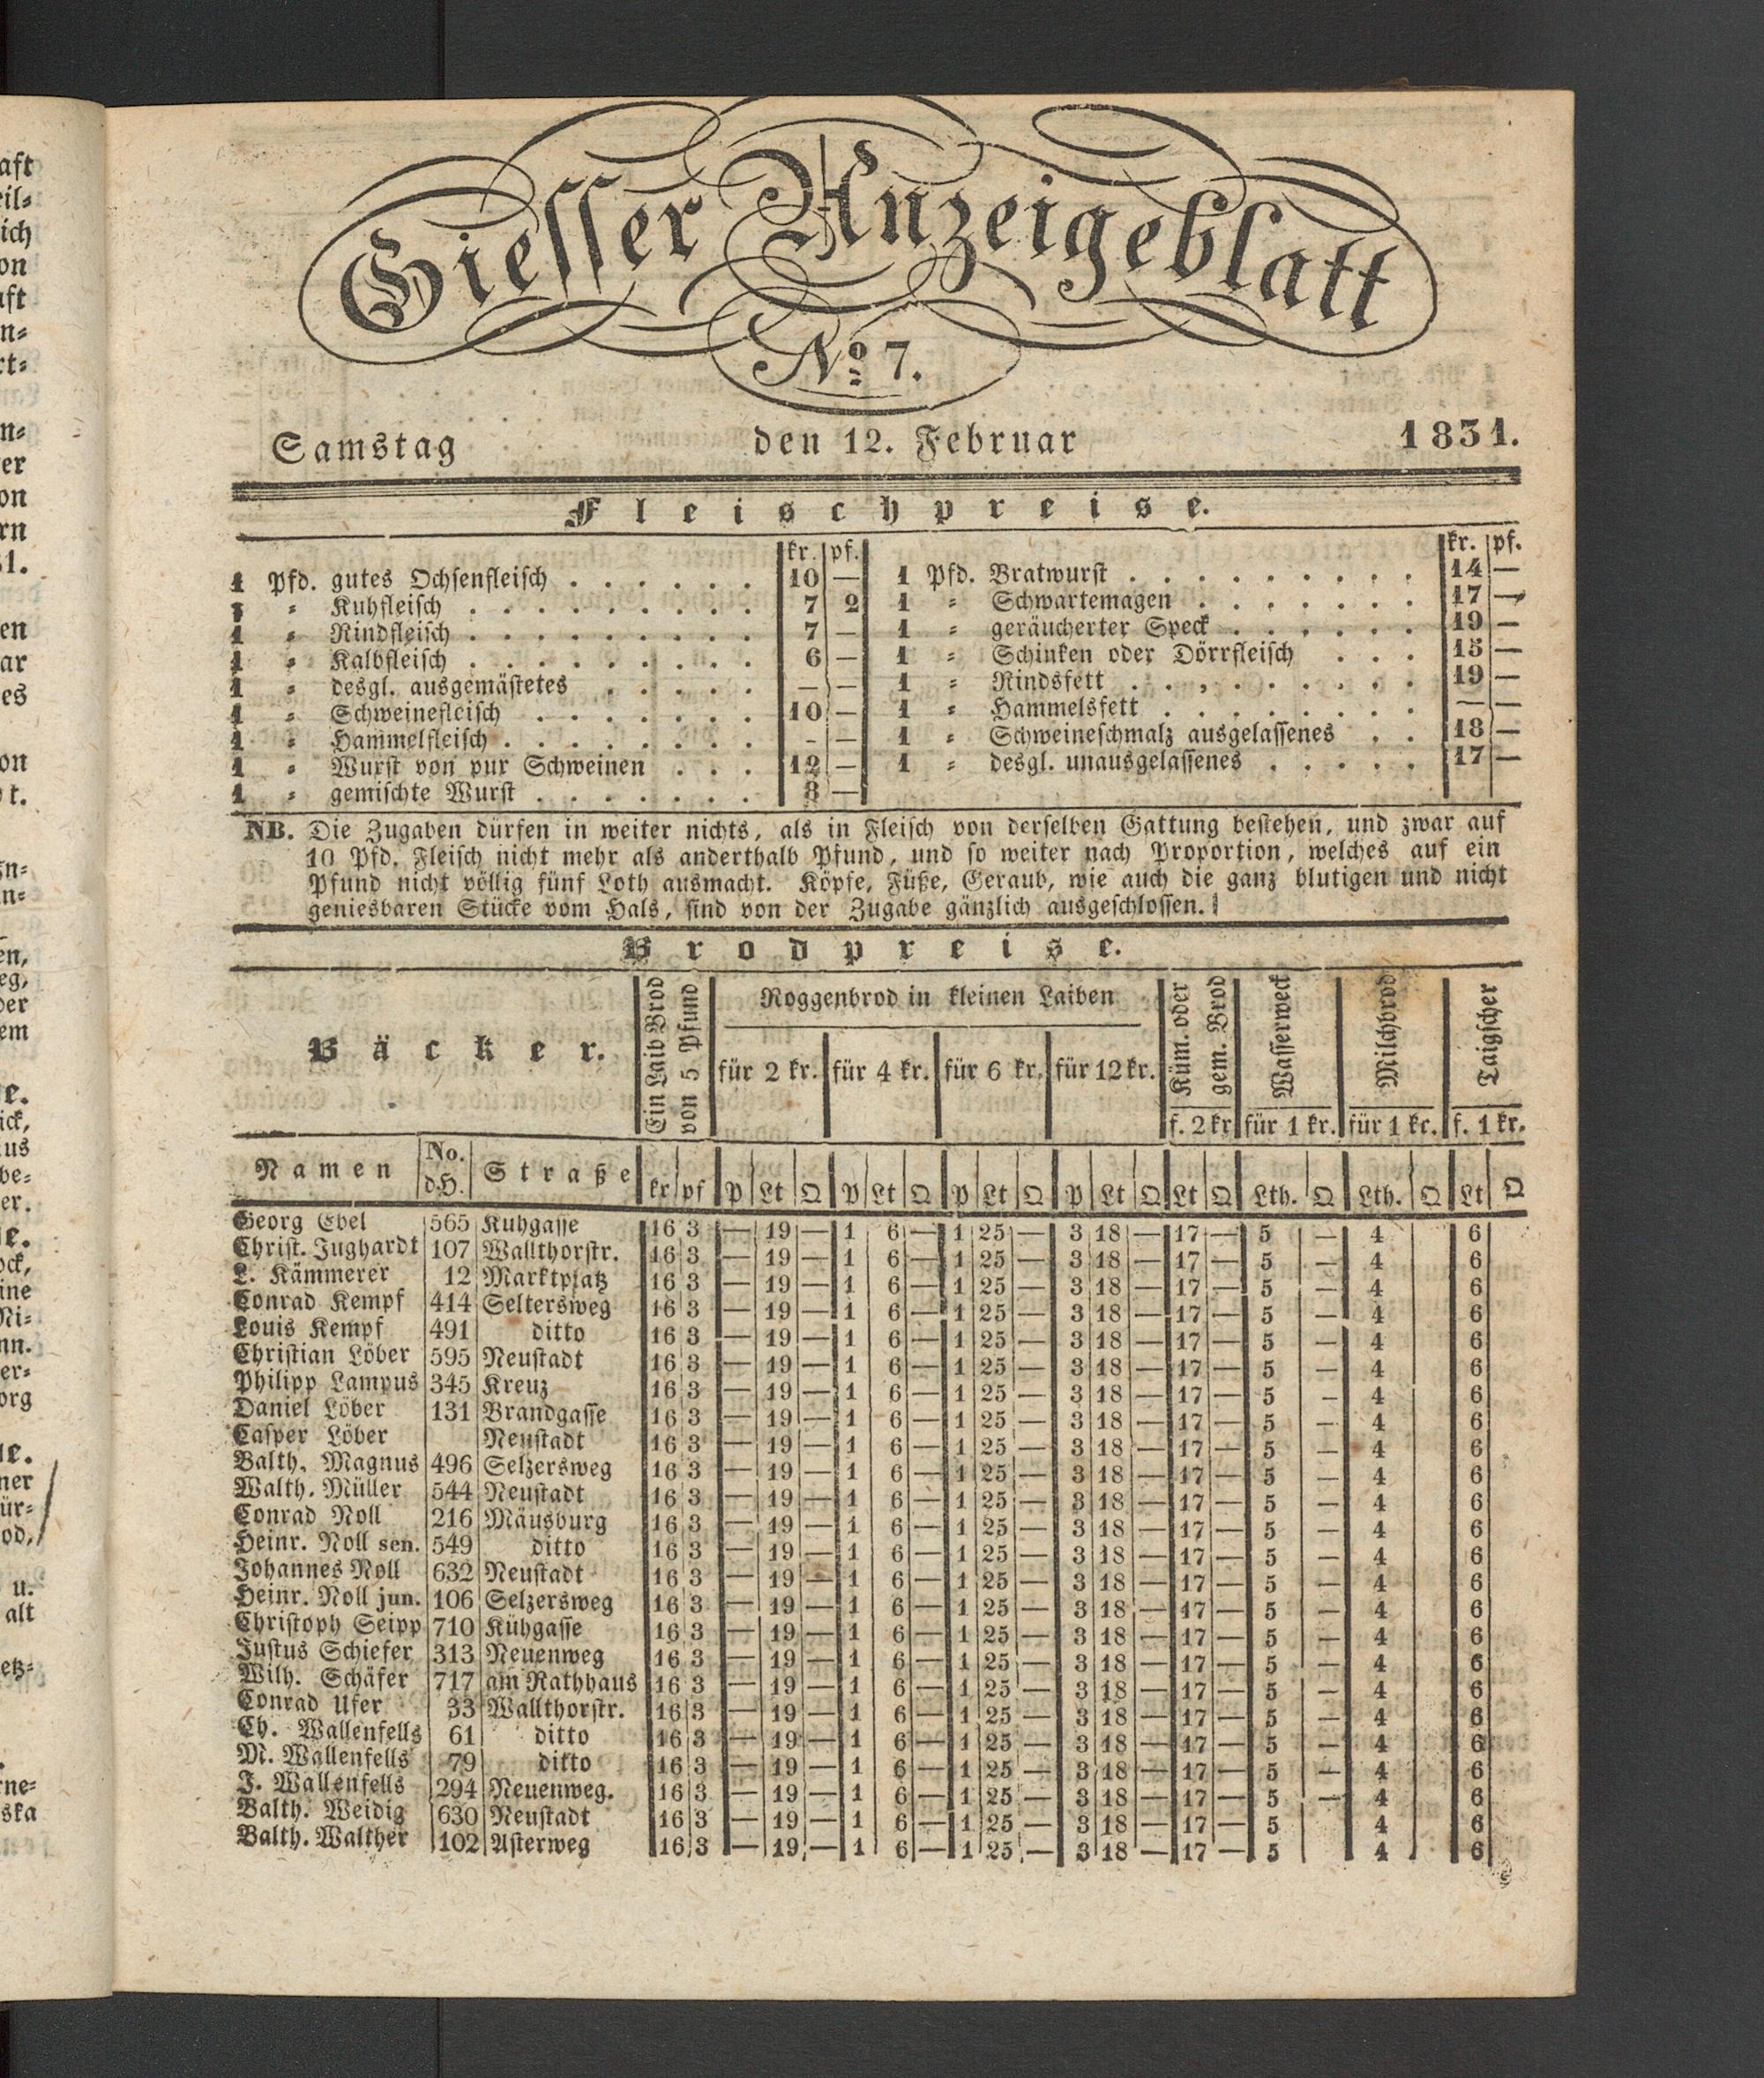 Giesser Anzeigeblatt
No 7.
Samstag den 12. Februar 1831.
Fleischpreise.
kr. pf.
1 Pfd. gutes Ochsenfleisch . . . . . . 10 —
1 = Kuhfleisch . . . . . . . . . 7 2
1 = Rindfleisch . . . . . . . . . 7 —
1 = Kalbfleisch . . . . . . . . . 6 —
1 = desgl. ausgemästetes . . . . . — —
1 = Schweinefleisch . . . . . . . 10 —
1 = Hammelfleisch . . . . . . . . — —
1 = Wurst von pur Schweinen . . . 12 —
1 = gemischte Wurst . . . . . . . 8 —
kr. pf.
1 Pfd. Bratwurst . . . . . . . . . 14 —
1 = Schwartemagen . . . . . . . 17 —
1 = geräucherter Speck . . . . . . 19 —
1 = Schinken oder Dörrfleisch . . . 15 —
1 = Rindsfett . . . . . . . . . 19 —
1 = Hammelsfett . . . . . . . . — —
1 = Schweineschmalz ausgelassenes . . 18 —
1 = desgl. unausgelassenes . . . . . 17 —
NB. Die Zugaben dürfen in weiter nichts, als in Fleisch von derselben Gattung bestehen, und zwar auf
10 Pfd. Fleisch nicht mehr als anderthalb Pfund, und so weiter nach Proportion, welches auf ein
Pfund nicht völlig fünf Loth ausmacht. Köpfe, Füße, Geraub, wie auch die ganz blutigen und nicht
geniesbaren Stücke vom Hals, sind von der Zugabe gänzlich ausgeschlossen.
Brodpreise.
Bäcker.
Ein Laib Brod
von 5 Pfund
Roggenbrod in kleinen Laiben
für 2 kr. für 4 kr. für 6 kr. für 12 kr.
Küm. oder
gem. Brod
f. 2 kr
Wasserweck
für 1 kr.
Milchbrod
für 1 kr.
Taigscher
f. 1 kr.
Namen No. d.H. Straße kr pf P Lt Q P Lt Q P Lt Q P Lt Q Lt Q Lth. Q Lth. Q Lt Q
Georg Ebel 565 Kuhgasse 16 3 — 19 — 1 6 — 1 25 — 3 18 — 17 — 5 — 4 6
Christ. Jughardt 107 Wallthorstr. 16 3 — 19 — 1 6 — 1 25 — 3 18 — 17 — 5 — 4 6
L. Kämmerer 12 Marktplatz 16 3 — 19 — 1 6 — 1 25 — 3 18 — 17 — 5 — 4 6
Conrad Kempf 414 Seltersweg 16 3 — 19 — 1 6 — 1 25 — 3 18 — 17 — 5 — 4 6
Louis Kempf 491 ditto 16 3 — 19 — 1 6 — 1 25 — 3 18 — 17 — 5 — 4 6
Christian Löber 595 Neustadt 16 3 — 19 — 1 6 — 1 25 — 3 18 — 17 — 5 — 4 6
Philipp Lampus 345 Kreuz 16 3 — 19 — 1 6 — 1 25 — 3 18 — 17 — 5 — 4 6
Daniel Löber 131 Brandgasse 16 3 — 19 — 1 6 — 1 25 — 3 18 — 17 — 5 — 4 6
Casper Löber Neustadt 16 3 — 19 — 1 6 — 1 25 — 3 18 — 17 — 5 — 4 6
Balth. Magnus 496 Selzersweg 16 3 — 19 — 1 6 — 1 25 — 3 18 — 17 — 5 — 4 6
Walth. Müller 544 Neustadt 16 3 — 19 — 1 6 — 1 25 — 3 18 — 17 — 5 — 4 6
Conrad Noll 216 Mäusburg 16 3 — 19 — 1 6 — 1 25 — 3 18 — 17 — 5 — 4 6
Heinr. Noll sen. 549 ditto 16 3 — 19 — 1 6 — 1 25 — 3 18 — 17 — 5 — 4 6
Johannes Noll 632 Neustadt 16 3 — 19 — 1 6 — 1 25 — 3 18 — 17 — 5 — 4 6
Heinr. Noll jun. 106 Selzersweg 16 3 — 19 — 1 6 — 1 25 — 3 18 — 17 — 5 — 4 6
Christoph Seipp 710 Kühgasse 16 3 — 19 — 1 6 — 1 25 — 3 18 — 17 — 5 — 4 6
Justus Schiefer 313 Neuenweg 16 3 — 19 — 1 6 — 1 25 — 3 18 — 17 — 5 — 4 6
Wilh. Schäfer 717 am Rathhaus 16 3 — 19 — 1 6 — 1 25 — 3 18 — 17 — 5 — 4 6
Conrad Ufer 33 Wallthorstr. 16 3 — 19 — 1 6 — 1 25 — 3 18 — 17 — 5 — 4 6
Ch. Wallenfells 61 ditto 16 3 — 19 — 1 6 — 1 25 — 3 18 — 17 — 5 — 4 6
M. Wallenfells 79 ditto 16 3 — 19 — 1 6 — 1 25 — 3 18 — 17 — 5 — 4 6
J. Wallenfells 294 Neuenweg. 16 3 — 19 — 1 6 — 1 25 — 3 18 — 17 — 5 — 4 6
Balth. Weidig 630 Neustadt 16 3 — 19 — 1 6 — 1 25 — 3 18 — 17 — 5 4 6
Balth. Walther 102 Asterweg 16 3 — 19 — 1 6 — 1 25 — 3 18 — 17 — 5 4 6